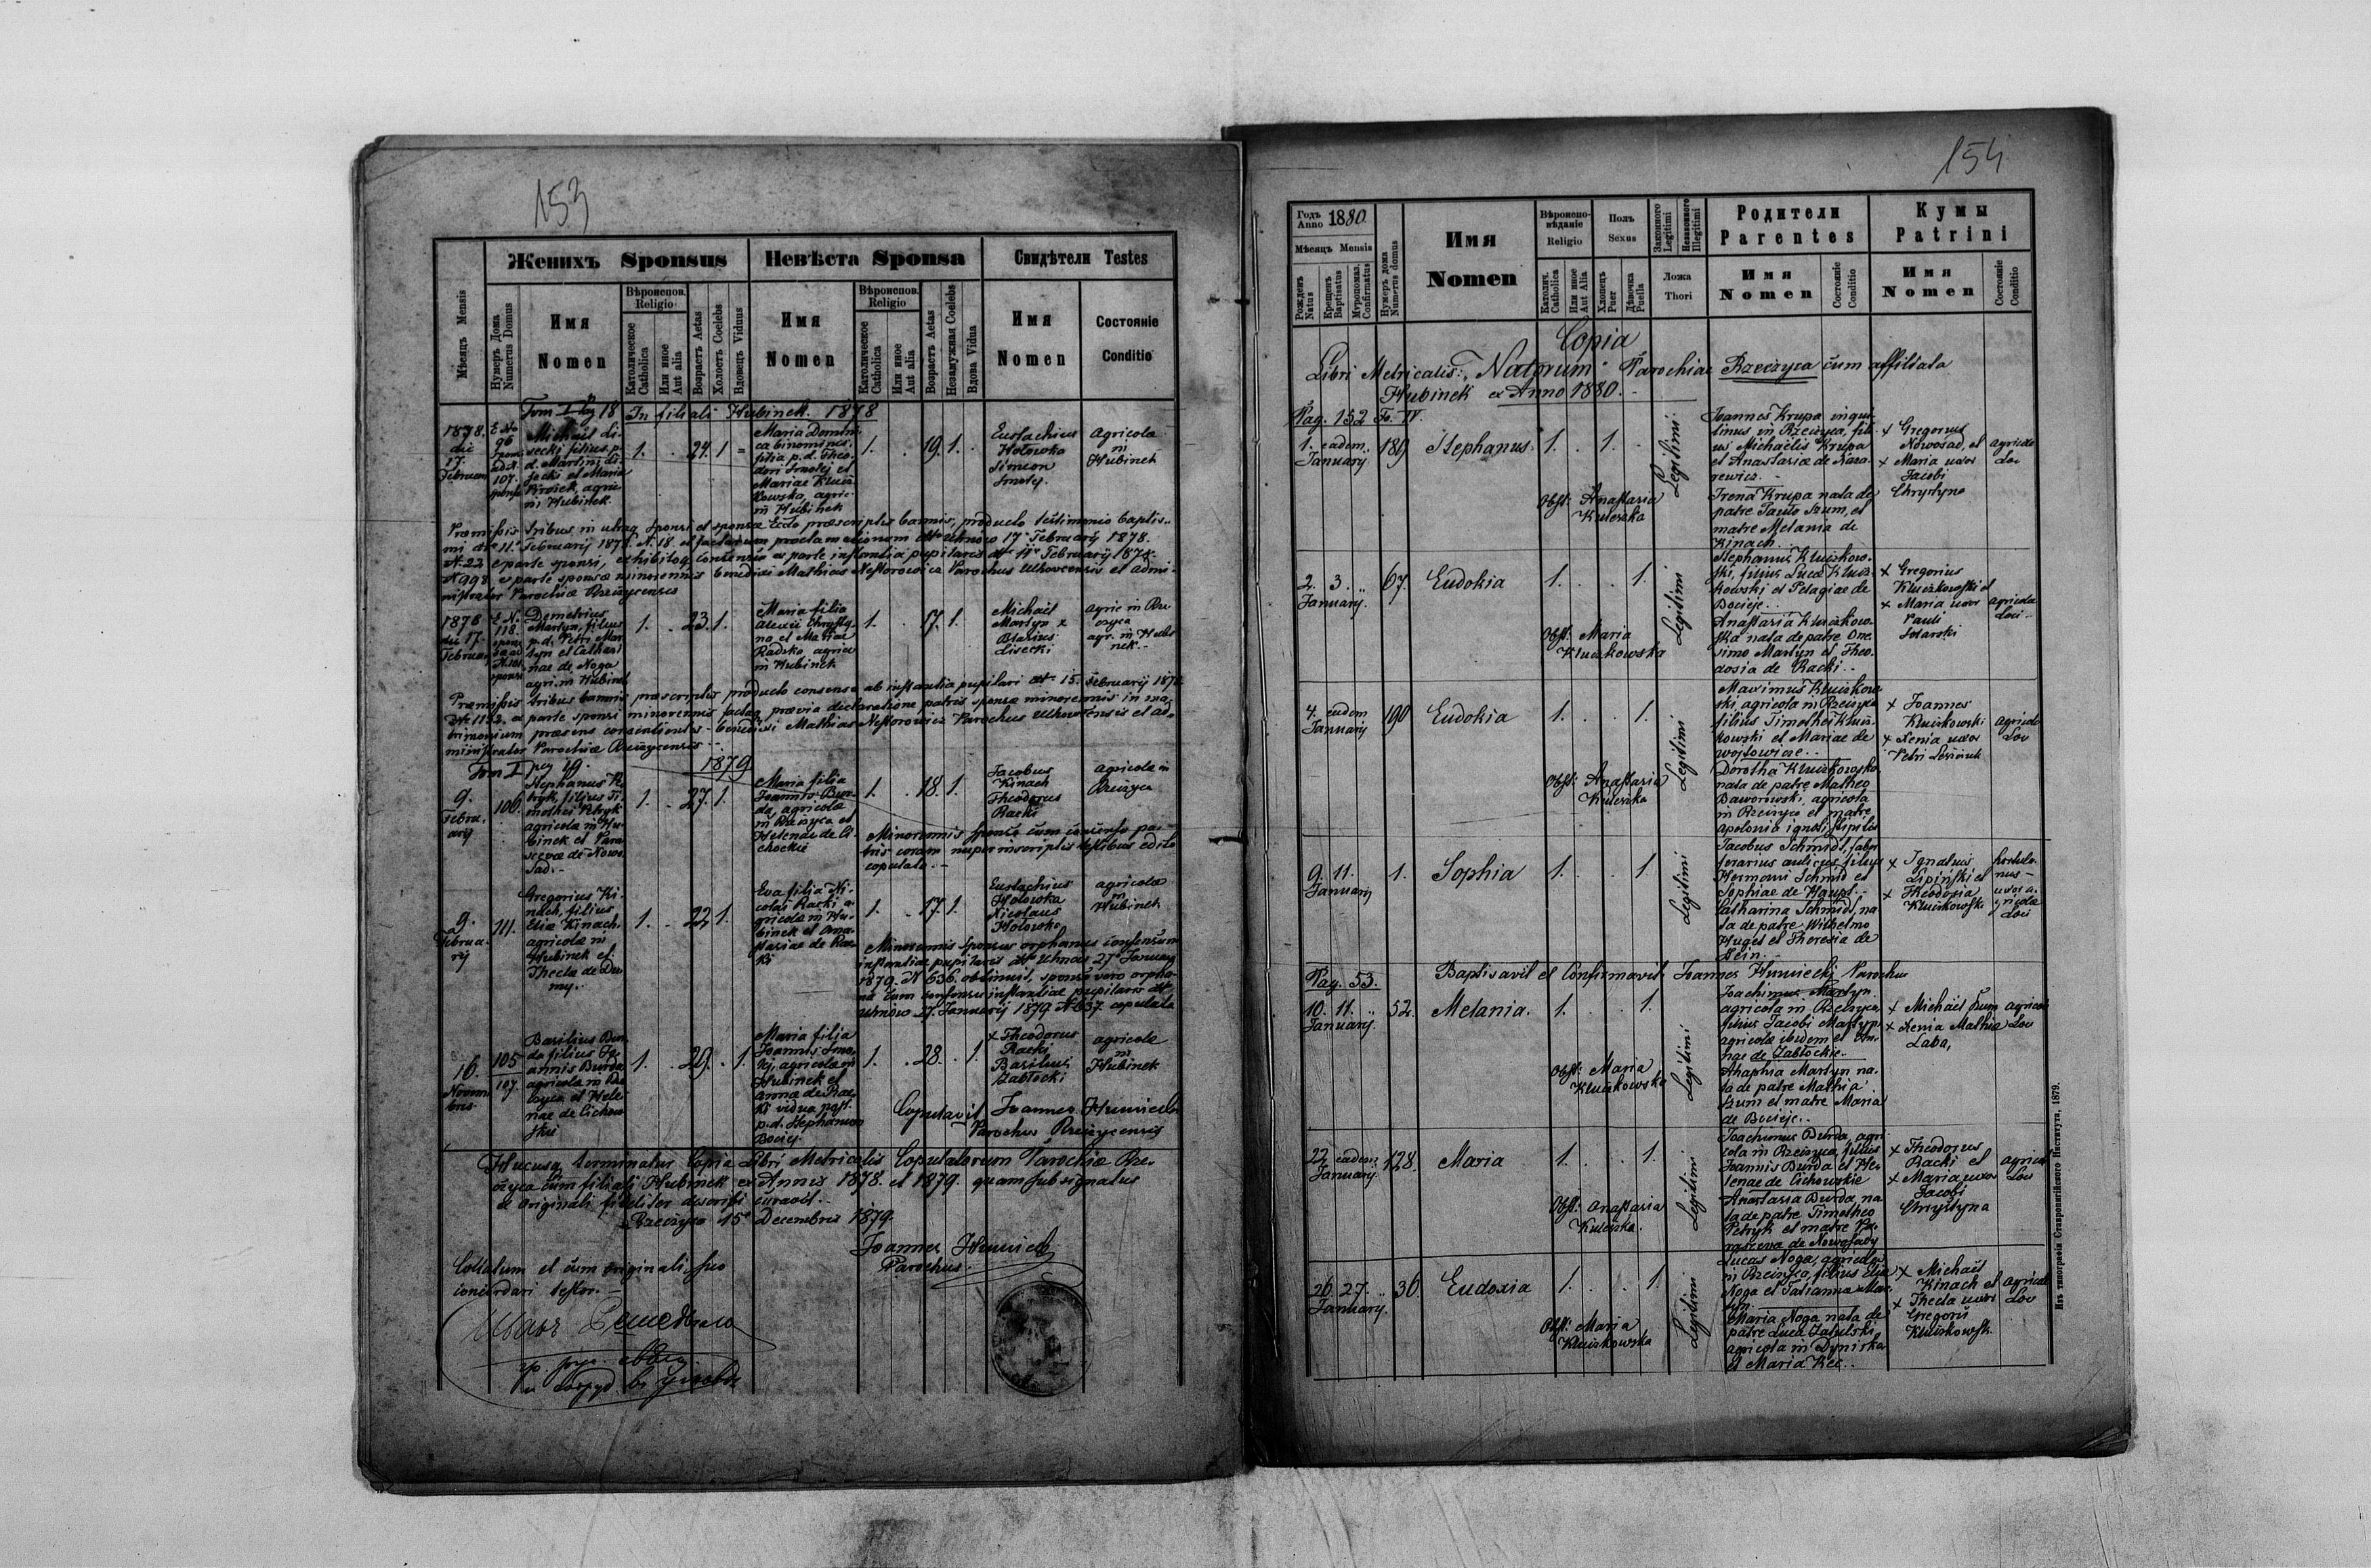 153
Женихъ Sponsus
Невѣста Sponsa
Свидѣтели Testes
Мѣсяцъ Mensis
Нумеръ Дома
Numerus Domus
Имя
Nomen
Вѣроиспов.
Religio
Католическое
Catholica
Или иное
Aut alia
Возрастъ Aetas
Холостъ Coelebs
Вдовецъ Viduus
Имя
Nomen
Вѣроиспов.
Religio
Католическое
Catholica
Или иное
Aut alia
Возрастъ Aetas
Незамужная Coelebs
Вдова Vidua
Имя
Nomen
Состояніе
Conditio
Tom I pag 18 In filiali Hubinek 1878
1878.
die
17.
Februar
96
107.
Michaël Li-
secki filius p.
d. Martini Li-
secki et Maria
agric.
in Hubinek
1. 24. 1
Maria Domini-
ca binominis.
filia p. d. Theo-
dori Smolej et
Mariae Klucz-
kowska, agric.
in Hubinek
1. 19. 1.
Eustachius
Hotowka
Simeon
Smolej.
Agricola
in
Hubinek
Præmissis tribus in utraq. sponsi et sponsæ Eccle præscriptis bannis, producto testimonio baptis-
mi dto 11. Februarij 1878. N. 18. et factarum proclamationum dto Uhnow 17 Februarij 1878.
N. 22 e parte sponsi, exhibitoq. consensu ex parte instantia pupilaris dto 11 Februarij 1878.
N 998 e parte sponsæ minorennis benedixi Mathias Nestorowicz Parochus Uhnovensis et admi-
nistrator Parochiæ Rzeczycensis
1878
die 17.
Februar
118.
Demetrius
Martyn, filius
p. d. Petri Mar-
tyn et Cathari
nae de Noga
agri. in Hubinek
1. 23. 1.
Maria filia
Alexii Chrysty-
na et Mariae
Radzko agric
in Hubinek
1. 17. 1.
Michaël
Martyn x
Blasius
Lisecki
agric in Rze-
czyca
agr. in Hubi
nek.
Præmissis tribus bannis præscriptis producto consensu ab instantia pupilari dto 15. Februarij 1878
N 1152. ex parte sponsi minorennis factaq prævia declaratione patris sponsæ minorennis in ma-
trimonium præsens consentientis - benedixi Mathias Nestorowicz Parochus Uhnovensis et ad-
ministrator Parochiæ Rzeczycensis
Tom I pag 19. 1879
9.
Febru-
arij
106.
Stephanus Pe-
tryk, filius Ti-
mothei Petryk
agricolæ in Hu-
binek et Para-
scevæ de Nowo-
sad.
1. 27. 1.
Maria filia
Joannis Bur-
da agricolæ
in Rzeczyca et
Helenae de Ci-
chockie
1. 18. 1.
Jacobus
Kinach
Theodorus
Racki
agricolæ in
Rzeczyca
Minorennis sponsa cum consensu pa-
tris coram nuper inscriptis testibus edito
copulata.
9.
Februa-
rij
111.
Gregorius Ki-
nach, filius
Eliæ Kinach
agricolæ in
Hubinek et
Theclæ de
1. 22 1.
Eva filia Ni-
colai Racki a-
gricolæ in Hu-
binek et Ana-
stasiae de Rac-
ki
1. 17. 1.
Eustachius
Hotowka
Nicolaus
Hotowka
agricolæ
in
Hubinek
Minorennis sponsus orphanus consensum
instantiæ pupilaris dto Uhnow 27 January
1879 N 636. obtinuit, sponsa vero orpha-
na cum consensu instantiæ pupilaris dto
Uhnow 27. January 1879 N 637. copulata
16.
Novem-
bris
105
107.
Basilius Bur-
da filius Jo-
annis Burda
agricolæ in Rze
czyca et Hele-
nae de Cichow-
skie
1. 29. 1.
Maria filia
Joannis Smo-
lej, agricolæ in
Hubinek et
Annæ de Rac-
ki vidua post
p. d. Stephanum
Bociej
1. 28. 1.
x Theodorus
Racki
Basilius
Zabłocki
agricolæ
in
Hubinek
Copulavit Joannes Humiecki
Parochus Rzeczycensis
Hucusq. terminatur Copia Libri Metricalis Copulatorum Parochiæ Rze-
czyca cum filiali Hubinek ex Annis 1878. et 1879. quam subsignatus
ex originali fideliter describi curavit.
Rzeczyca 15 Decembris 1879.
Joannes Humiecki
Parochus.
Collatum et cum originali suo
concordari testor.
154
Годъ
Anno 1880
Мѣсяцъ Mensis
Рожденъ
Natus
Крещенъ
Baptisatus
Мѵропомаз.
Confirmatus
Нумеръ дома
Numerus domus
Имя
Nomen
Вѣроиспо-
вѣданіе
Religio
Католич.
Catholica
Или иное
Aut Alia
Полъ
Sexus
Хлопецъ
Puer
Дѣвочка
Puella
Законного
Legitimi
Незаконного
Illegitimi
Ложа
Thori
Родители
Parentes
Имя
Nomen
Состояніе
Conditio
Кумы
Patrini
Имя
Nomen
Состояніе
Conditio
Copia
Libri Metricalis „Natorum" Parochiae Rzeczyca cum affiliata
Hubinek ex Anno 1880.
Pag. 152 To. IV.
1. eadem
January.
189 Stephanus 1. 1.
Legitimi
Obst: Anastasia
Kuleszka
Joannes Krupa inqui-
linus in Rzeczyca, fili-
us Michaëlis Krupa
et Anastasiæ de Naza-
rewicz.
Irena Krupa nata de
patre Paulo Szum, et
matre Melania de
Kinach.
x Gregorius
Nowosad, et
x Maria uxor
Jacobi
Chrystyna
agricolæ
loci
2. 3.
January.
67. Eudokia 1. 1.
Legitimi
Obst: Maria
Kluczkowska
Stephanus Kluczkow-
ski, filius Lucæ Klucz-
kowski et Pelagiae de
Bocieje.
Anastasia Kluczkow-
ska nata de patre One-
simo Martyn et Theo-
dosia de Racki.
x Gregorius
Kluczkowski et
x Maria uxor
Pauli
agricolæ
loci
4. eadem
January
190 Eudokia 1. 1.
Legitimi
Obst: Anastasia
Kuleszka
Maximus Kluczkow-
ski, agricola in Rzeczyca
filius Timothei Klucz-
kowski et Mariae de
Wojtowicze.
Dorotha Kluczkowska
nata de patre Matheo
Baworowski, agricola
in Rzeczyca et matre
Apolonia ignoti stipitis
x Joannes
Kluczkowski
x Xenia uxor
Petri
agricolæ
loci
9. 11.
January
1. Sophia 1. 1
Legitimi
Jacobus Schmidt, faber
ferarius aulicus, filius
Hermanni Schmid et
Sophiae de Haupt.
Catharina Schmidt, na-
ta de patre Wilhelmo
Huget et Theresia de
Hein.
x Ignatius
Lipiński et
x Theodosia
Kluczkowsk.
hortula-
nus
uxor a-
gricolæ
loci
Baptisavit et Confirmavit Joannes Humiecki Parochus
Pag. 53.
10. 11.
January.
52. Melania. 1. 1.
Legitimi
Obst: Maria
Kluczkowska
Joachimus Martyn
agricola in Rzeczyca,
filius Jacobi Martyn
agricolæ ibidem et An-
nae de Zabłockie.
Ahaphia Martyn na-
ta de patre Mathia
Szum et matre Maria
de Bocieje.
x Michaël Szum
x Xenia Mathiæ
Laba,
agricolæ
loci
22 eadem
January.
128. Maria 1. 1.
Legitimi
Obst: Anastasia
Kuleszka.
Joachimus Burda, agri
cola in Rzeczyca, filius
Joannis Burda et He-
lenae de Cichowskie
Anastasia Burda, na-
ta de patre Timotheo
Petryk et matre Pa-
rasceva de Nowosady
x Theodorus
Racki et
x Maria uxor
Jacobi
Chrystyna
agricolæ
loci
26. 27.
January.
36. Eudoxia 1. 1.
Legitimi
Obst: Maria
Kluczkowska
Lucas Noga, agricola
in Rzeczyca, filius Eliæ
Noga et Tatianna Mar-
tyn.
Maria Noga nata de
patre Luca Zatulski
agricola in Dyniska
et Maria Kec.
x Michaël
Kinach et
x Thecla uxor
Gregorii
Kluczkowsk.
agricolæ
loci
Изъ типографіи Ставропигійского Института, 1879.